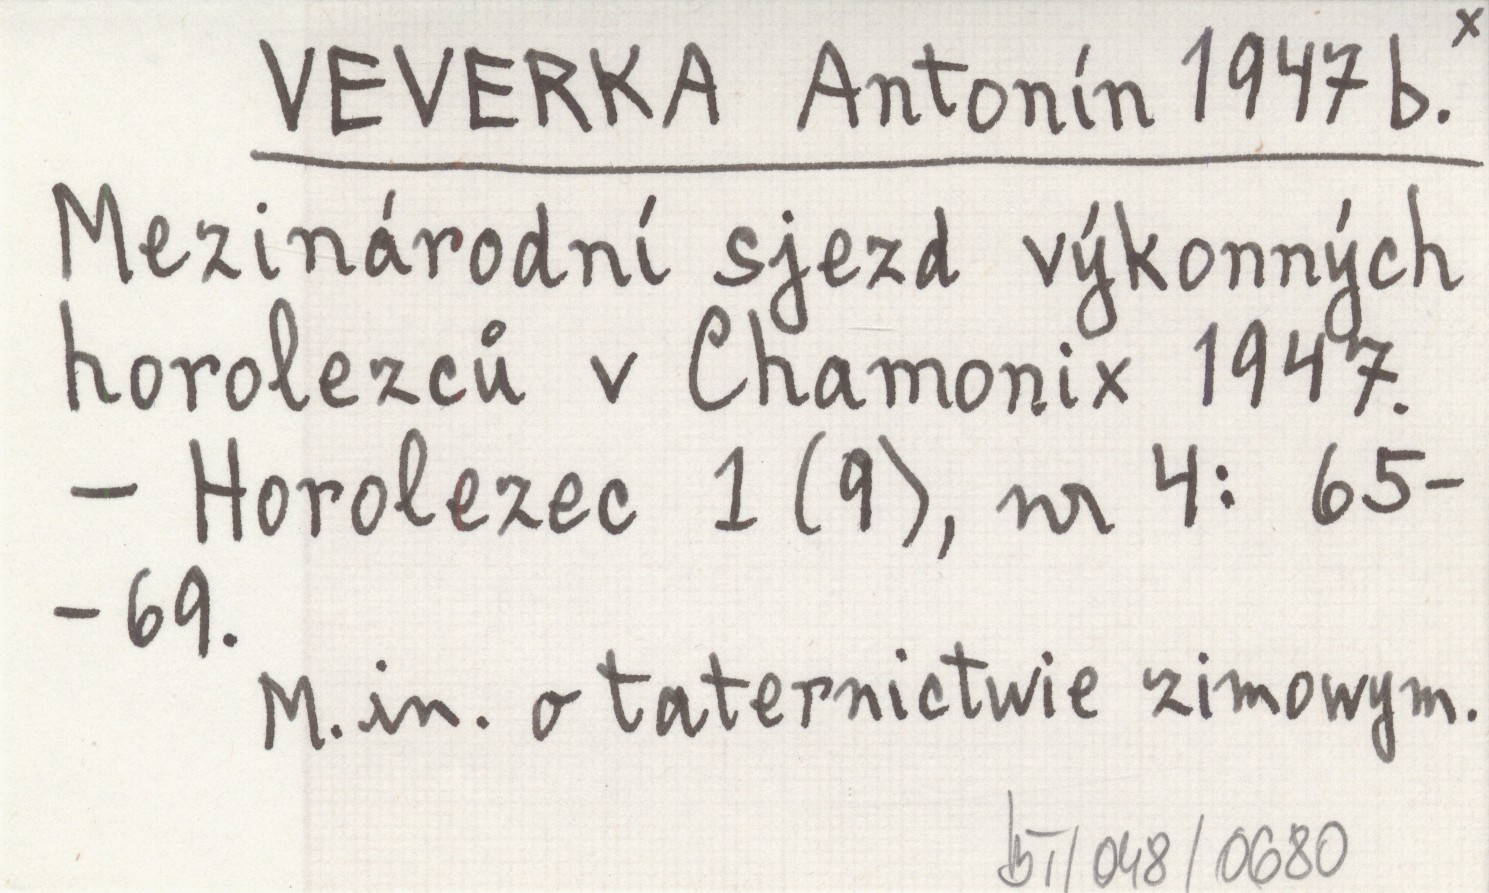 VEVERKA Antonín 1947b. x
Mezinárodní sjezd výkonných
horolezců v Chamonix 1947.
– Horolezec 1 (9), nr 4: 65-
-69.
M.in. o taternictwie zimowym.
bT/048/0680